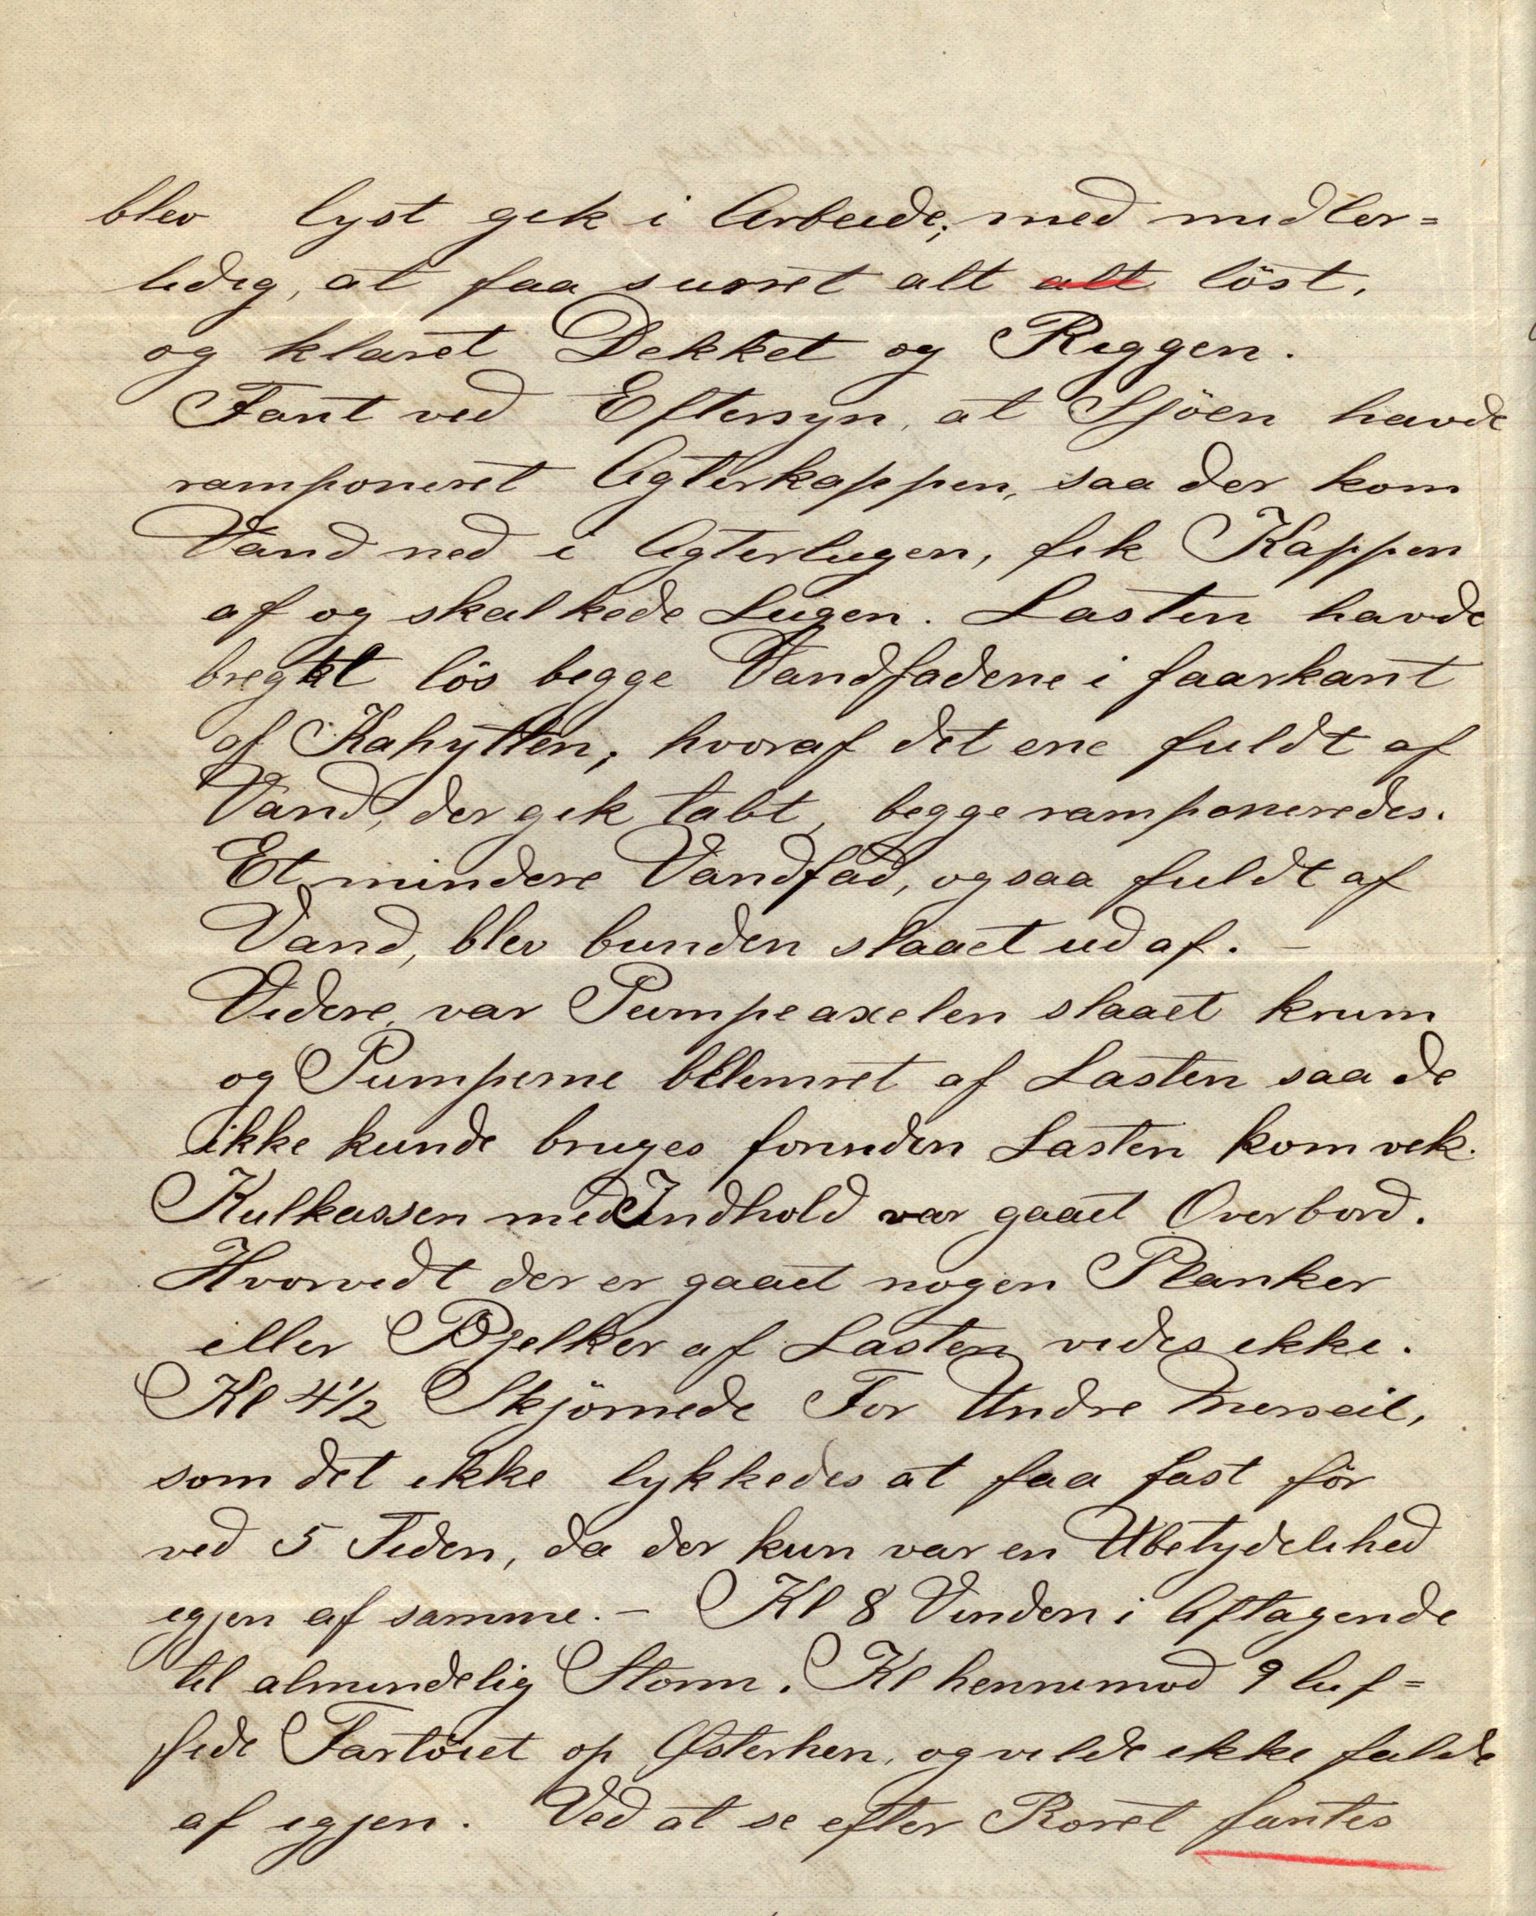 blev lyst gik i Arbeide; med midler=
tidig, at faa surret alt alt löst,
og klaret Dekket og Riggen.
Fant ved Eftersyn, at Sjöen havde
ramponeret Agterkappen, saa der kom
Vand ned i Agterlugen, fik Kappen
af og skalkede Lugen. Lasten havde
bregkt lös begge Vandfadene i faarkant
af Kahytten, hvoraf det ene fuldt af
Vand, der gik tabt, begge ramponeredes.
Et mindre Vandfad, ogsaa fuldt af
Vand, blev bunden slaaet ud af. –
Videre, var Pumpeaxelen slaaet krum
og Pumperne af Lasten saa de
ikke kunde bruges forinden Lasten kom vek.
Kulkassen med Indhold var gaaet Overbord.
Hvorvidt der er gaaet nogen Planker
eller Bjelker af Lasten vides ikke.
Kl 4 1/2 Skjörnede For Undre Merseil,
som det ikke lykkedes at faa fast för
ved 5 Tiden, da der kun var en Ubetydelihed
igjen af samme. – Kl 8 Vinden i Aftagende
til almindelig Storm. Kl hennimod 9 luf=
fede Fartöiet op Østerhen, og vilde ikke falde
af igjen. Ved at se efter Roret fantes